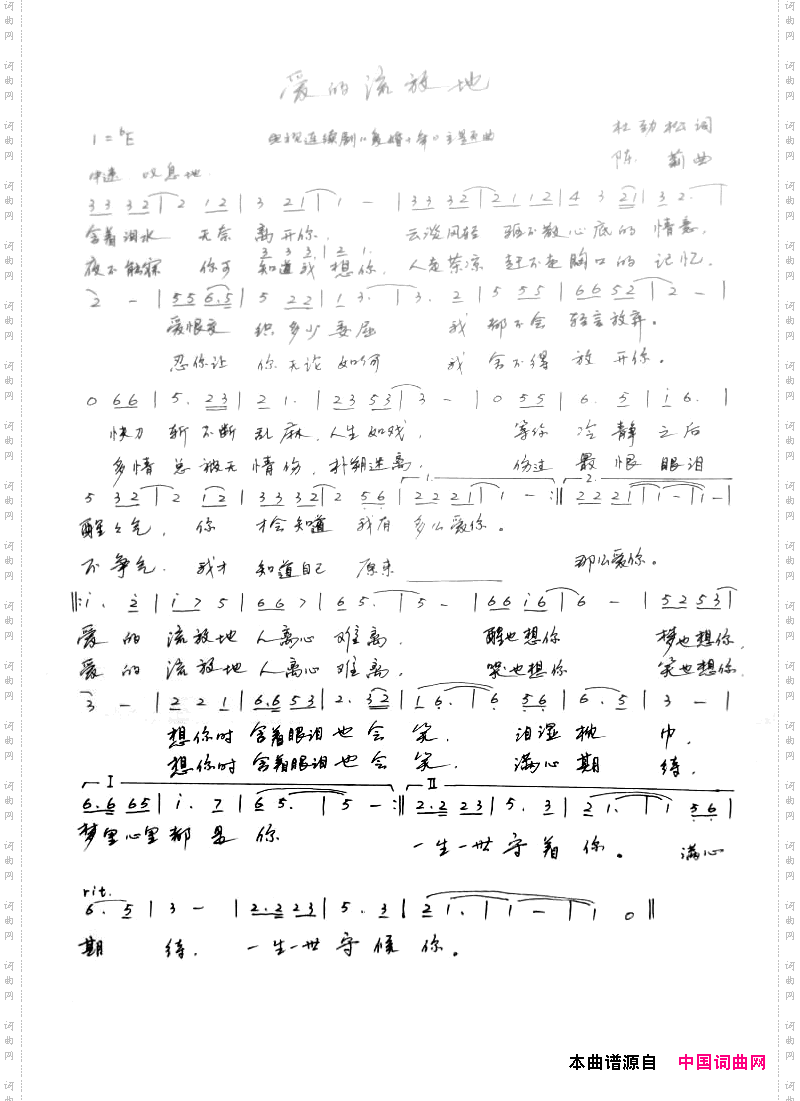 爱的流放地
1=♭E 电视连续剧《离婚十年》主题曲 杜劲松词
陈 曲
中速 叹息地
3 3 3 2 | 2 1 2 | 3 2 1 | 1 - | 3 3 3 2 | 2 1 1 2 | 4 3 2 1 | 3 2. |
含着泪水 无奈 离开你, 云淡风轻 驱不散心底的情意,
3 3 3 | 2 1.
夜不能寐 你可 知道我想你, 人走茶凉 赶不走胸口的记忆.
2 - | 5 5 6.5 | 5 2 2 | 1 3. | 3. 2 | 5 5 5 | 6 6 5 2 | 2 - |
爱恨交织多少委屈 我 都不会 轻言放弃。
忍你让 你无论如何 我 舍不得 放开你。
0 6 6 | 5. 2 3 | 2 1. | 2 3 5 3 | 3 - | 0 5 5 | 6. 5 | i 6. |
快刀 斩不断乱麻,人生如戏, 等你 冷静之后
多情 总被无情伤,扑朔迷离, 伤过 最恨眼泪
5 3 2 | 2 1 2 | 3 3 3 2 | 2 5 6 | 1. 2 2 2 1 | 1 - :‖ 2. 2 2 2 1 | 1 - | 1 - |
醒々气, 你 才会知道 我有多么爱你。
不争气. 我才 知道自己 原来 那么爱你。
‖: i. 2 | i 7 5 | 6 6 7 | 6 5. | 5 - | 6 6 i 6 | 6 - | 5 2 5 3 |
爱 的 流放地 人离心难离, 醒也想你 梦也想你,
爱 的 流放地 人离心难离, 哭也想你 笑也想你,
3 - | 2 2 1 | 6.6 5 3 | 2. 3 2 | 1 6. | 6 5 6 | 6. 5 | 3 - |
想你时 含着眼泪也会笑, 泪湿枕 巾,
想你时 含着眼泪也会笑, 满心期 待,
I 6.6 6 5 | i. 7 | 6 5. | 5 - :‖ II 2.2 2 3 | 5. 3 | 2 1. | 1 5 6 |
梦里心里都是你 一生一世守着你。 满心
rit.
6. 5 | 3 - | 2.2 2 3 | 5. 3 | 2 1. | 1 - | 1 0 ‖
期 待, 一生一世守候你。
本曲谱源自 中国词曲网
词曲网